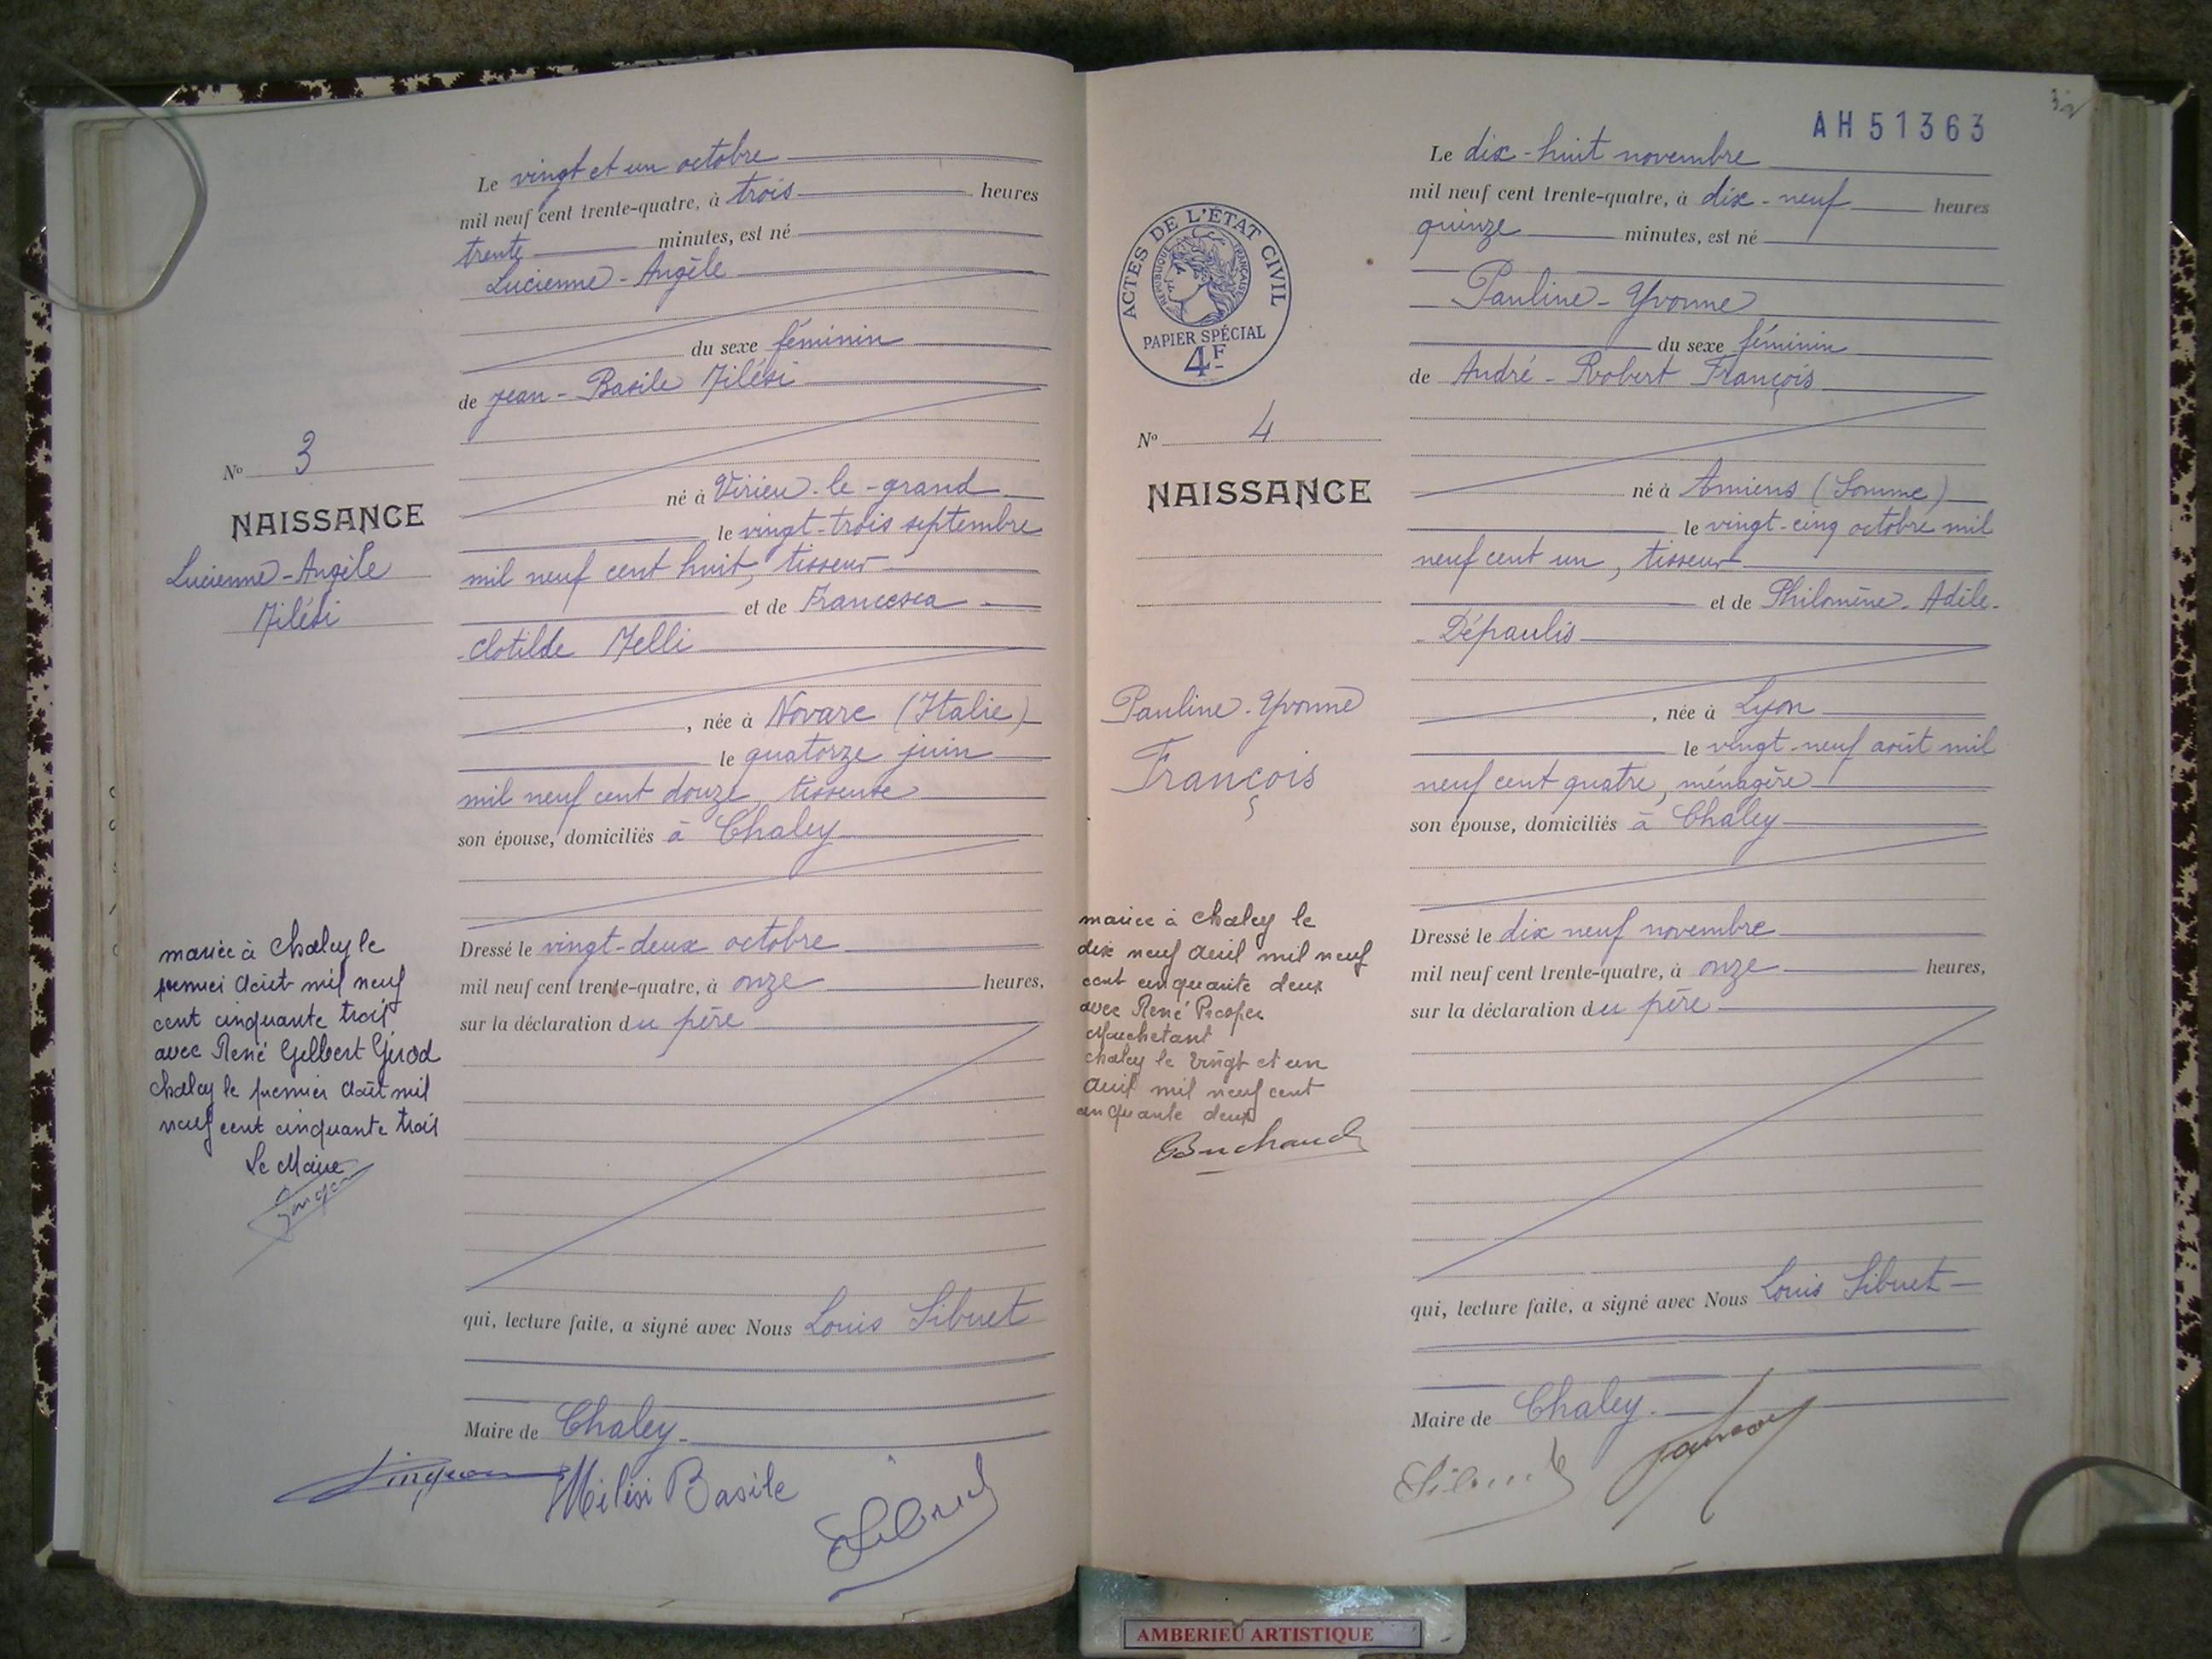 Le vingt et un octobre
mil neuf cent trente-quatre, à trois heures
trente minutes, est né
Lucienne-Angèle
du sexe féminin
de Jean-Basile Milési
né à Virieu-le-grand
le vingt-trois septembre
mil neuf cent huit, tisseur
et de Francesca
Clotilde Melli
, née à Novare (Italie)
le quatorze juin
mil neuf cent douze, tisseuse
son épouse, domiciliés à Chaley
Dressé le vingt-deux octobre
mil neuf cent trente-quatre, à onze heures,
sur la déclaration du père
qui, lecture faite, a signé avec Nous Louis Sibuet
Maire de Chaley.
Milési Basile
Sibuet
No 3
NAISSANCE
Lucienne-Angèle
Milési
mariée à Chaley le
premier Août mil neuf
cent cinquante trois
avec René Gilbert Girod
Chaley le premier Août mil
neuf cent cinquante trois
Le Maire
AH51363
32
Le dix-huit novembre
mil neuf cent trente-quatre, à dix-neuf heures
quinze minutes, est né
Pauline-Yvonne
du sexe féminin
de André-Robert François
né à Amiens (Somme)
le vingt-cinq octobre mil
neuf cent un, tisseur
et de Philomène-Adèle-
Dépaulis
, née à Lyon
le vingt-neuf août mil
neuf cent quatre, ménagère
son épouse, domiciliés à Chaley
Dressé le dix neuf novembre
mil neuf cent trente-quatre, à onze heures,
sur la déclaration du père
qui, lecture faite, a signé avec Nous Louis Sibuet
Maire de Chaley.
Sibuet
ACTES DE L'ÉTAT CIVIL
RÉPUBLIQUE FRANÇAISE
PAPIER SPÉCIAL
4F
No 4
NAISSANCE
Pauline-Yvonne
François
mariée à Chaley le
dix neuf avril mil neuf
cent cinquante deux
avec René Prosper
Mouchetant
Chaley le vingt et un
Avril mil neuf cent
cinquante deux
AMBERIEU ARTISTIQUE